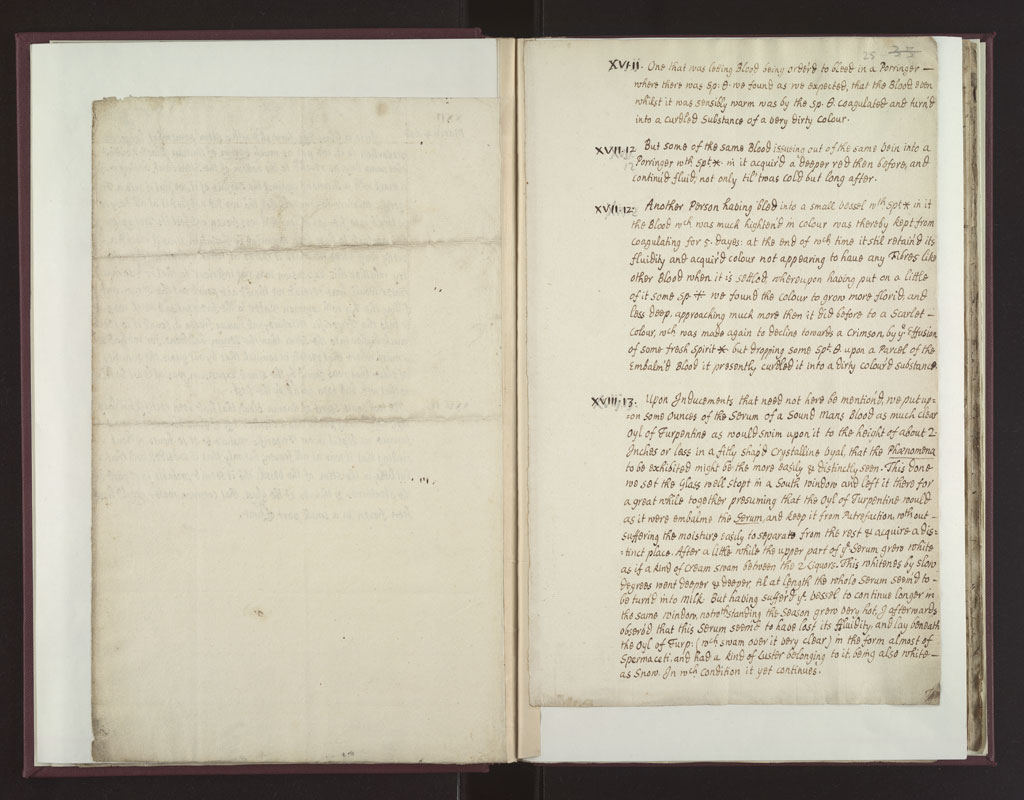 25 35
XVI-11. One that was letting Blood being order'd to bleed in a Porringer —
where there was Sp: θ. we found as we expected, that the Blood even
whilst it was sensibly warm was by the sp. θ. coagulated and turn'd
into a curdled Substance of a very dirty Colour.
XVII-12 But some of the same Blood issueing out of the same vein into a
Porringer wth spt * in it acquir'd a deeper red then before, and
continu'd fluid, not only til 'twas cold but long after.
XVII-12: Another Person having bled into a small vessel wth spt * in it
the Blood wch was much highten'd in colour was thereby kept from
coagulating for 5. dayes: at the end of wch time it stil retain'd its
fluidity and acquir'd colour not appearing to have any Fibres like
other Blood when it is settled, whereupon having put on a little
of it some sp. we found the colour to grow more florid, and
less deep, approaching much more then it did before to a Scarlet —
Colour, wch was made again to decline towards a Crimson, by ye Effusion
of some fresh Spirit * but dropping some spt. θ. upon a Parcel of the
Embalm'd Blood it presently curdled it into a dirty colour'd substance.
XVIII-13. Upon Inducements that need not here be mention'd, we put up-
=on some Ounces of the Serum of a Sound Mans Blood as much clear
Oyl of Turpentine as would swim upon it to the height of about 2.
Inches or less in a fitly shap'd Crystalline Vyal, that the Phænomena
to be exhibited might be the more easily & distinctly seen. This done
we set the Glass well stopt in a South window and left it there for
a great while together presuming that the Oyl of Turpentine would
as it were embalme the Serum, and keep it from Putrefaction, wthout —
suffering the moisture easily to separate from the rest & acquire a dis=
=tinct place. After a little while the upper part of ye Serum grew white
as if a kind of Cream swam between the 2 Liquors. This whitenes by slow
degrees went deeper & deeper, til at length the whole Serum seem'd to —
be turn'd into Milk. But having suffer'd ye vessel to continue longer in
the same window, notwthstanding the Season grew very hot, I afterwards
observ'd that this Serum seem'd to have lost its fluidity, and lay beneath
the Oyl of Turp: (wch swam over it very clear) in the form almost of
Spermaceti, and had a kind of Luster belonging to it, being also white —
as Snow. In wch Condition it yet continues.